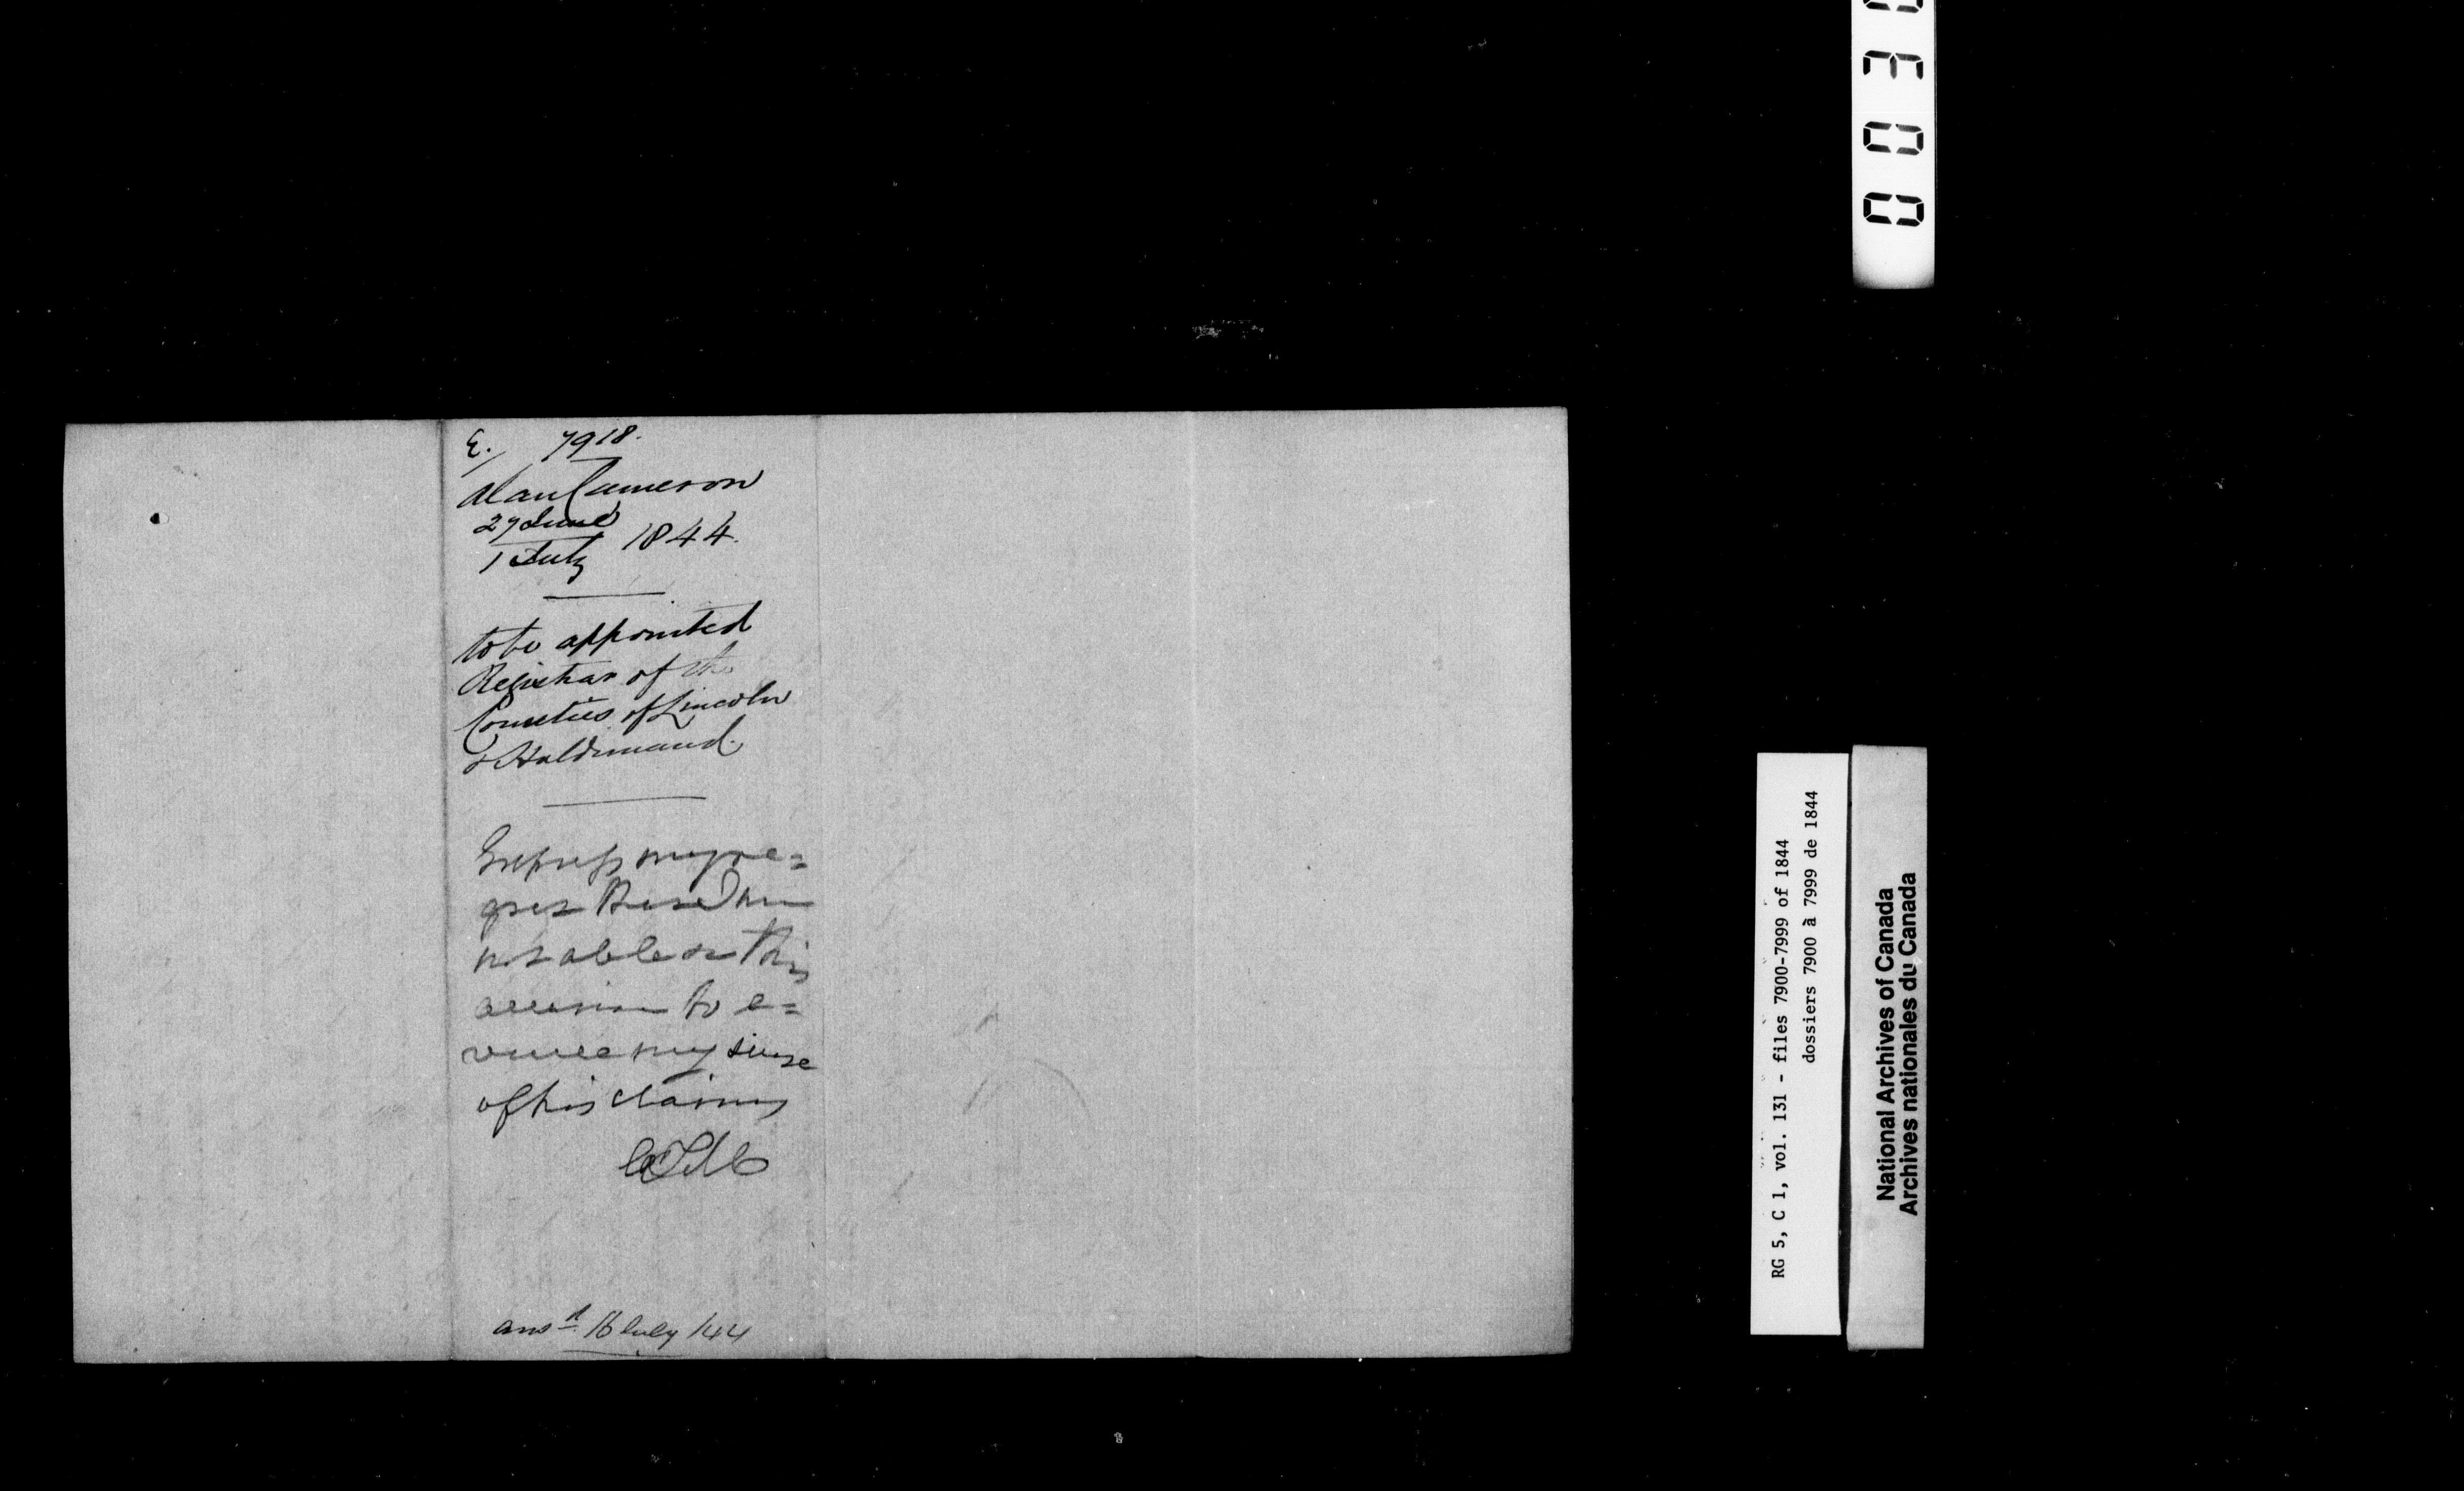 E. / 7918.
Alan Cameron
27 June
1 July 1844.
to be appointed
Registrar of the
Counties of Lincoln
& Haldimand.
Express my re=
gret that I am
not able on this
occasion to e=
vince my sense
of his claims
ansd 16 July /44
0 0 3
RG 5, C 1, vol. 131 - files 7900-7999 of 1844
dossiers 7900 à 7999 de 1844
National Archives of Canada
Archives nationales du Canada